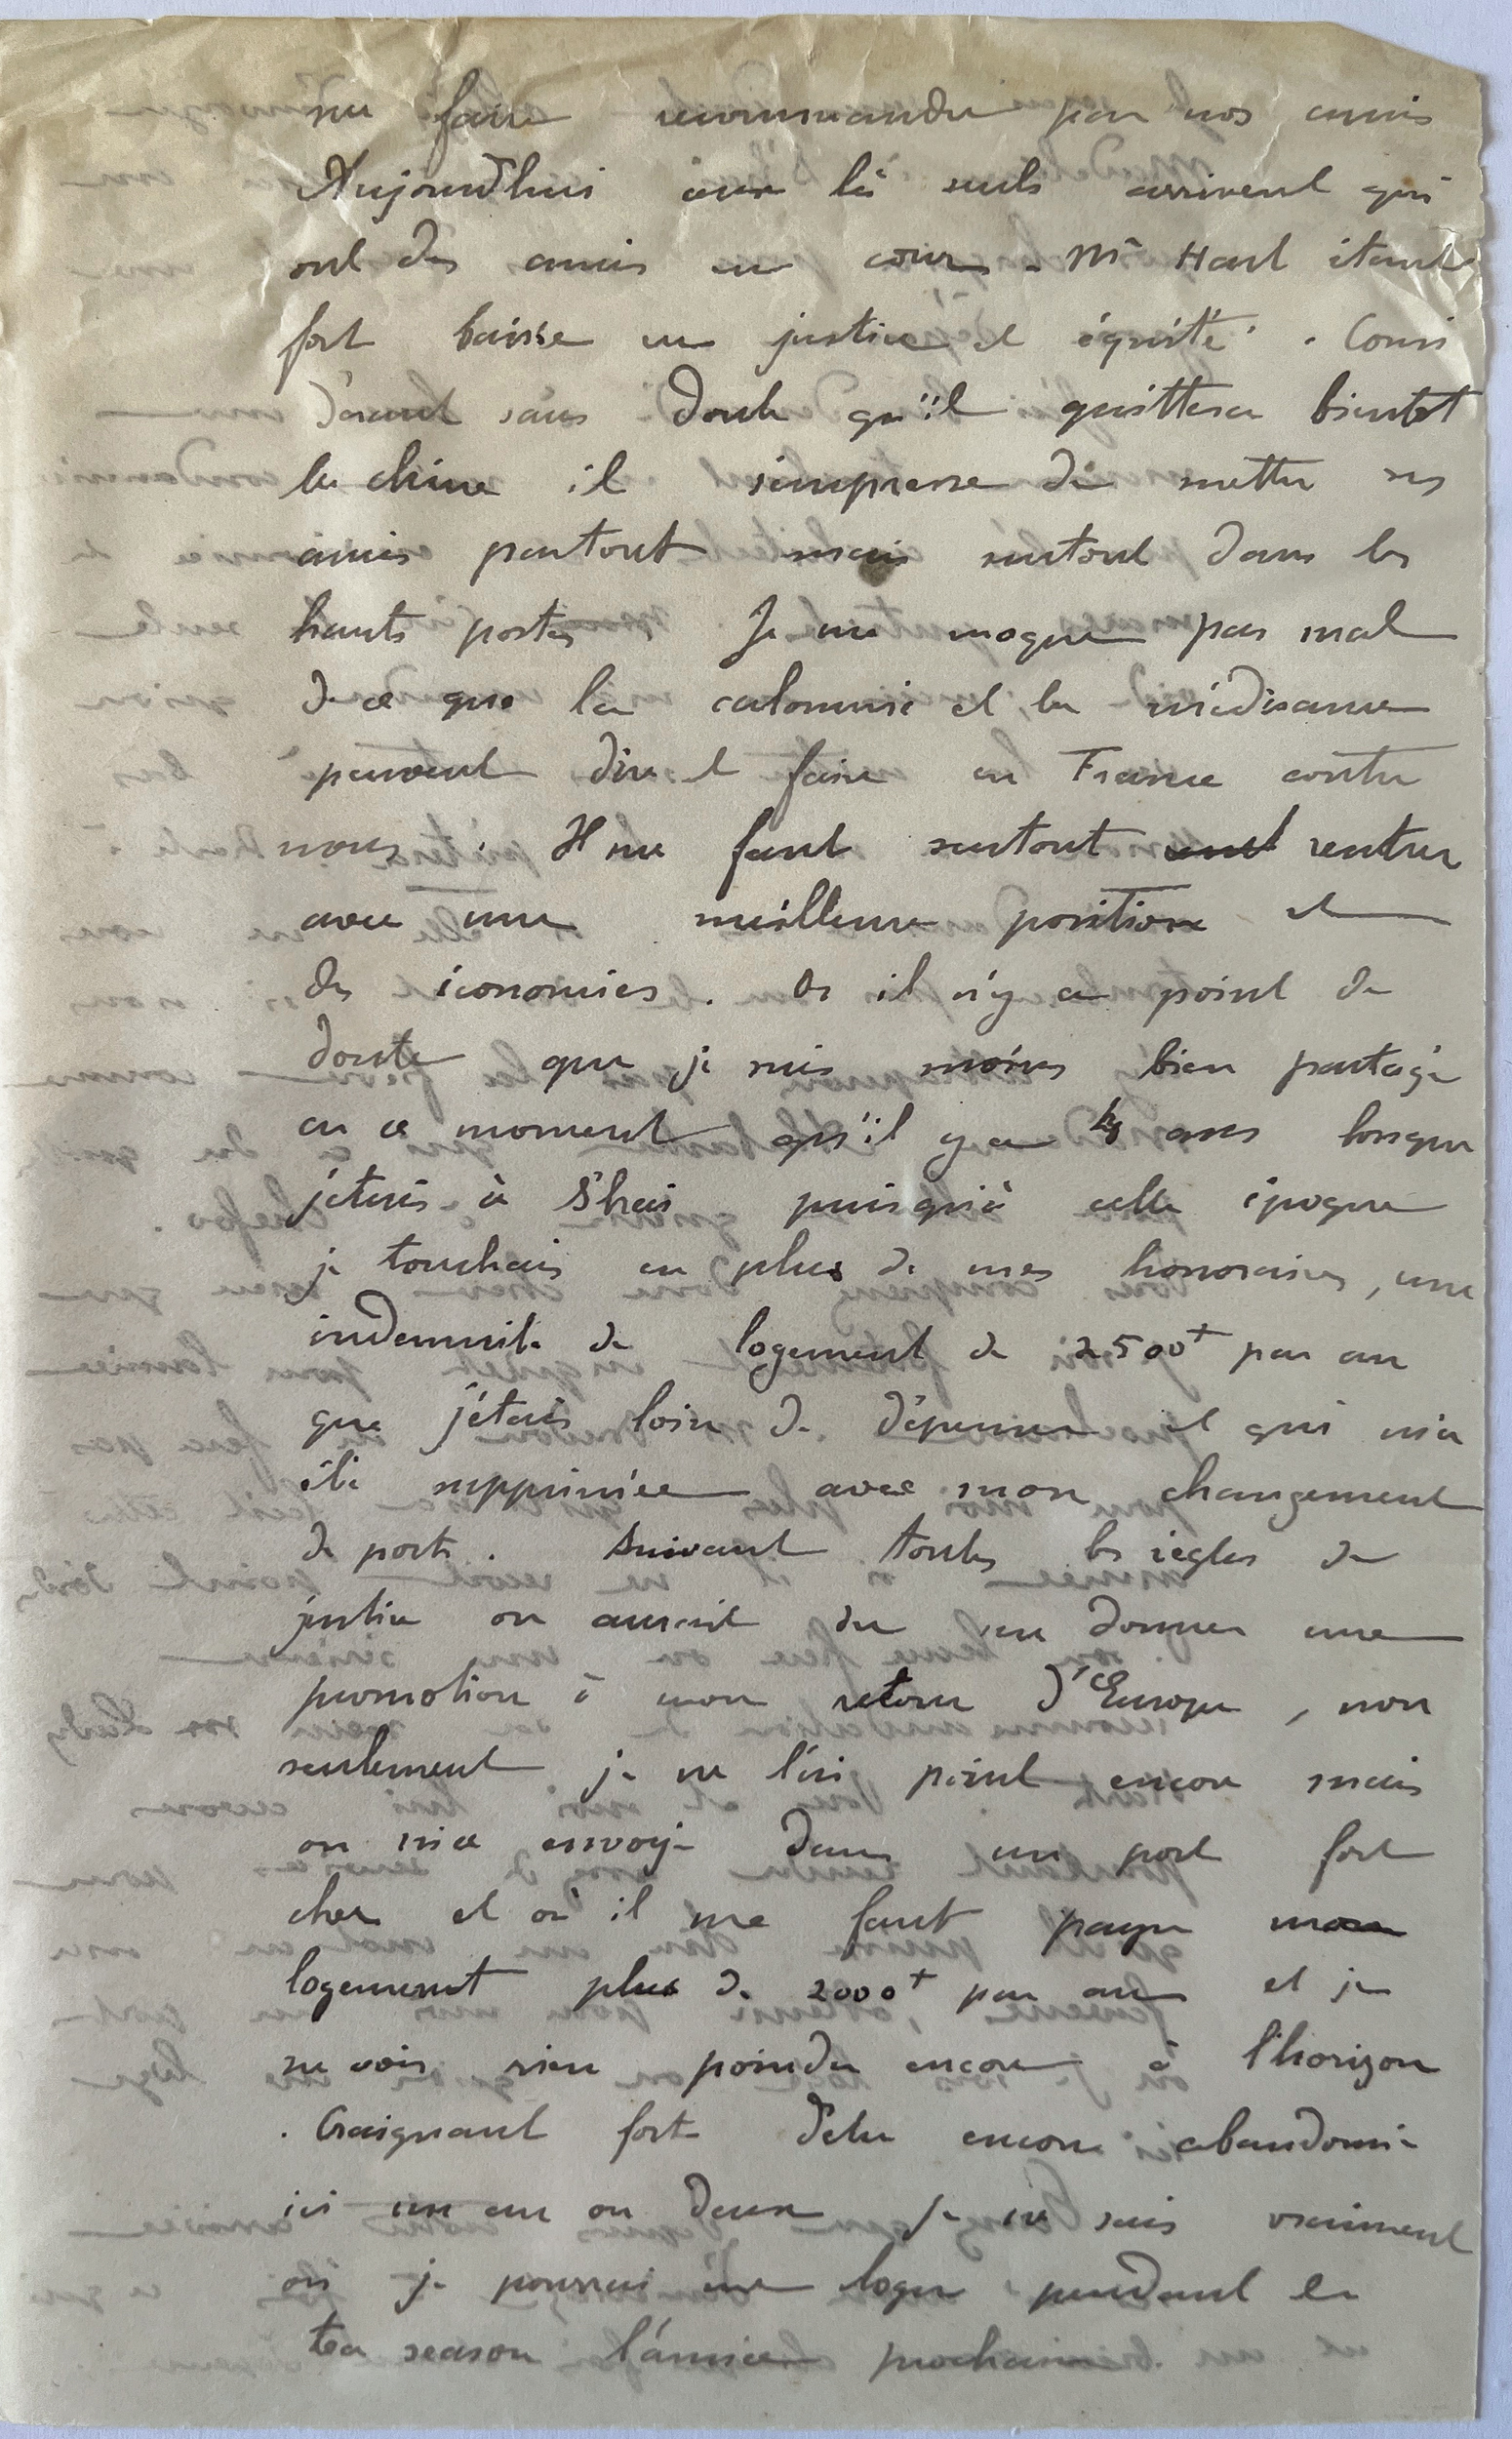 me faire recommander par nos amis
Aujourd'hui ceux là seuls arrivent qui
ont des amis en cour. Mr Hart étant
fort baissé en justice et équité. Consi
dérant sans doute qu'il quittera bientot
la chine il s'empresse de mettre ses
amis partout mais surtout dans les
hauts postes. Je me moque pas mal
de ce que la calomnie et la médisance
peuvent dire et faire en France contre
nous. Il me faut surtout rentrer
avec une meilleure position et
des économies. Or il n'y a point de
doute que je suis moins bien partagé
en ce moment qu'il y a ans lorsque
j'étais à S'hai puisqu'à cette époque
je touchais en plus de mes honoraires, une
indemnité de logement de 2500+ par an
que j'étais loin de dépenser et qui m'a
été supprimée avec mon changement
de port. Suivant toutes les règles de
justice on aurait du me donner une
promotion à mon retour d'Europe, non
seulement je ne l'ai point encore mais
on m'a envoyé dans un port fort
cher et où il me faut payer mon
logement plus de 2000+ par an et je
ne vois rien poindre encore à l'horizon
. Craignant fort d'etre encore abandonné
ici un an ou deux je ne sais vraiment
où je pourrai me loger pendant la
tea season l'année prochaine.